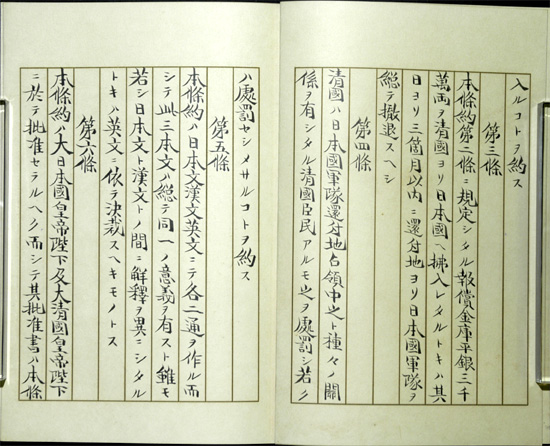 入ルコトヲ約ス
第三條
本條約第二條ニ規定シタル報償金庫平銀三千
萬兩ヲ清國ヨリ日本國ヘ拂入レタルトキハ其
日ヨリ三箇月以内ニ還付地ヨリ日本國軍隊ヲ
總テ撤退スヘシ
第四條
清國ハ日本國軍隊還付地占領中之ト種々ノ關
係ヲ有シタル清國臣民アルモ之ヲ處罰シ若ク
ハ處罰セシメサルコトヲ約ス
第五條
本條約ハ日本文漢文英文ニテ各二通ヲ作ル而
シテ此三本文ハ總テ同一ノ意義ヲ有スト雖モ
若シ日本文ト漢文トノ間ニ解釋ヲ異ニシタル
トキハ英文ニ依テ決裁スヘキモノトス
第六條
本條約ハ大日本國皇帝陛下及大清國皇帝陛下
ニ於テ批准セラルヘク而シテ其批准書ハ本條